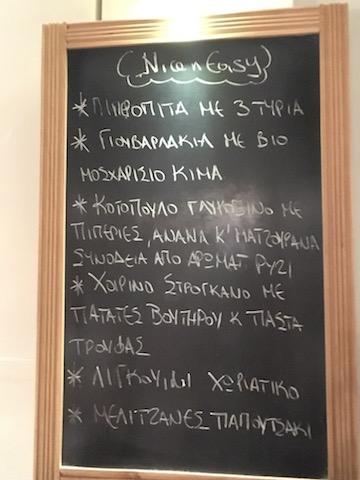 Nice n Easy
* ΠΙΠΕΡΟΠΙΤΑ ΜΕ 3 ΤΥΡΙΑ
* ΓΙΟΥΒΑΡΛΑΚΙΑ ΜΕ ΒΙΟ
ΜΟΣΧΑΡΙΣΙΟ ΚΙΜΑ
* ΚΟΤΟΠΟΥΛΟ ΓΛΥΚΟΞΙΝΟ ΜΕ
ΠΙΠΕΡΙΕΣ, ΑΝΑΝΑ Κ' ΜΑΤΖΟΥΡΑΝΑ
ΣΥΝΟΔΕΙΑ ΑΠΟ ΑΡΩΜΑΤ ΡΥΖΙ
* ΧΟΙΡΙΝΟ ΣΤΡΟΓΚΑΝΟ ΜΕ
ΠΑΤΑΤΕΣ ΒΟΥΤΗΡΟΥ Κ ΠΑΣΤΑ
ΤΡΟΥΦΑΣ
* ΛΙΓΚΟΥΙΝΙ ΧΩΡΙΑΤΙΚΟ
* ΜΕΛΙΤΖΑΝΕΣ ΠΑΠΟΥΤΣΑΚΙ